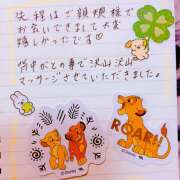 先程はご親類様で
お会いできまして大変
嬉しかったです♡
背中がとの事で沢山沢山
マッサージさせていただきました。
ROAR!
©Disney
©Disney